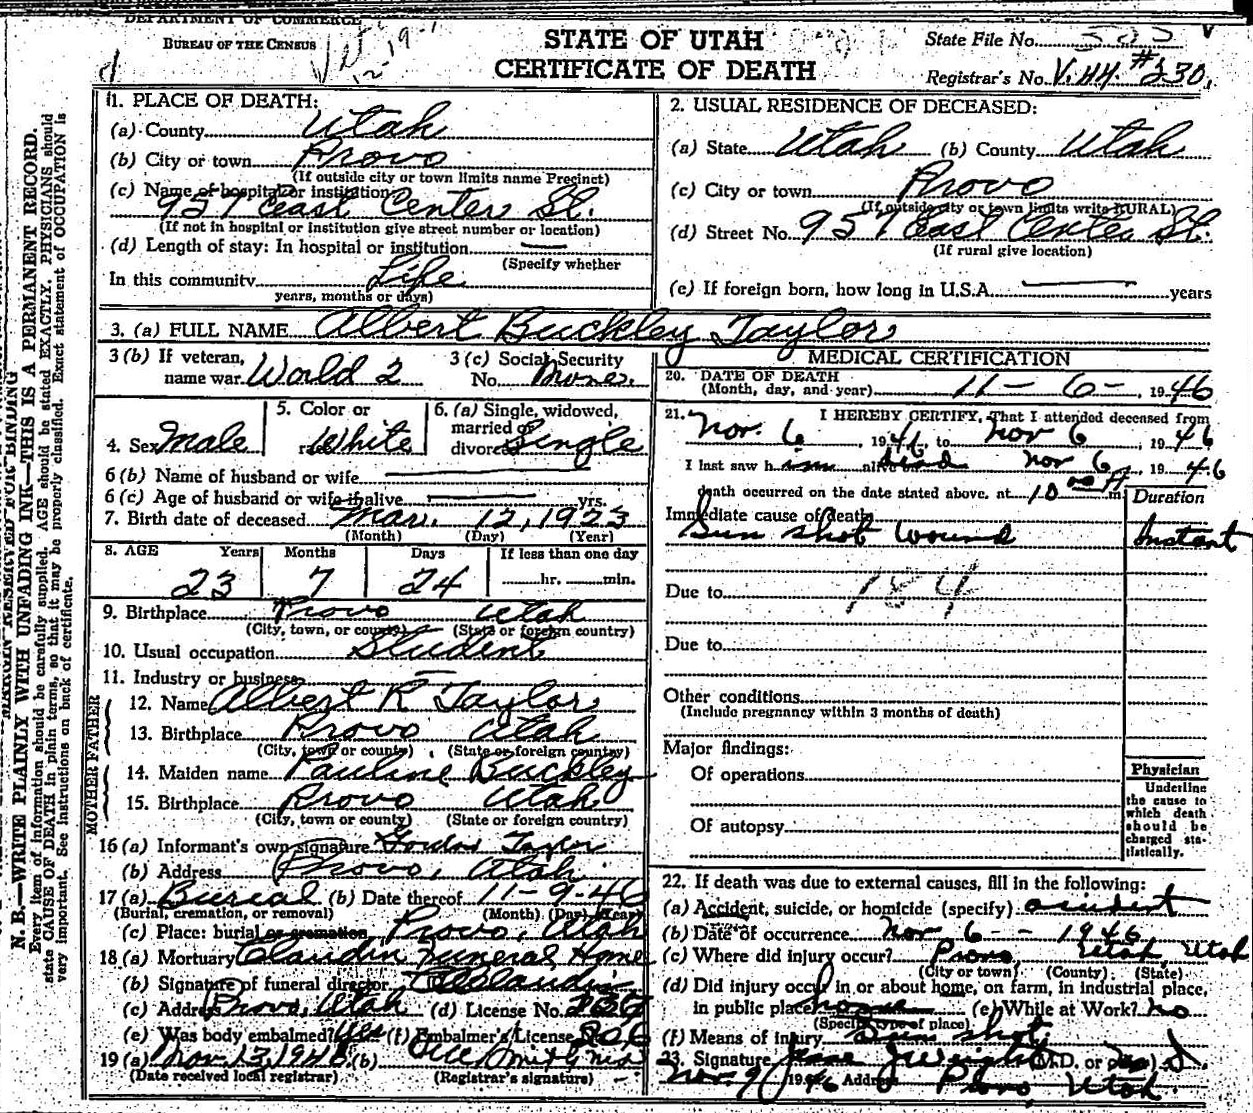 DEPARTMENT OF COMMERCE
BUREAU OF THE CENSUS
STATE OF UTAH
CERTIFICATE OF DEATH
State File No.
Registrar's No. V.44. #230.
N. B.—WRITE PLAINLY WITH UNFADING INK—THIS IS A PERMANENT RECORD.
Every item of information should be carefully supplied. AGE should be stated EXACTLY. PHYSICIANS should
state CAUSE OF DEATH in plain terms, so that it may be properly classified. Exact statement of OCCUPATION is
very important. See instructions on back of certificate.
1. PLACE OF DEATH:
(a) County Utah
(b) City or town Provo
(If outside city or town limits name Precinct)
(c) Name of hospital or institution
957 East Center St.
(If not in hospital or institution give street number or location)
(d) Length of stay: In hospital or institution —
(Specify whether
In this community Life
years, months or days)
2. USUAL RESIDENCE OF DECEASED:
(a) State Utah (b) County Utah
(c) City or town Provo
(If outside city or town limits write RURAL)
(d) Street No. 957 East Center St.
(If rural give location)
(e) If foreign born, how long in U.S.A. — years
3. (a) FULL NAME Albert Buckley Taylor
3 (b) If veteran, name war. World 2
3 (c) Social Security No. None.
4. Sex Male
5. Color or race White
6. (a) Single, widowed, married or divorced Single
6 (b) Name of husband or wife —
6 (c) Age of husband or wife if alive — yrs.
7. Birth date of deceased Mar. 12, 1923
(Month) (Day) (Year)
8. AGE Years Months Days If less than one day
23 7 24 hr. min.
9. Birthplace Provo Utah
(City, town, or county) (State or foreign country)
10. Usual occupation Student
11. Industry or business —
FATHER
12. Name Albert R Taylor
13. Birthplace Provo Utah
(City, town or county) (State or foreign country)
MOTHER
14. Maiden name Pauline Buckley
15. Birthplace Provo Utah
(City, town or county) (State or foreign country)
16 (a) Informant's own signature Gordon Taylor
(b) Address Provo, Utah
17 (a) Burial (b) Date thereof 11-9-46
(Burial, cremation, or removal) (Month) (Day) (Year)
(c) Place: burial or cremation Provo, Utah
18 (a) Mortuary Claudin Funeral Home
(b) Signature of funeral director
(c) Address Provo, Utah (d) License No.
(e) Was body embalmed? Yes (f) Embalmer's License
19 (a) Nov 13, 1946 (b)
(Date received local registrar) (Registrar's signature)
MEDICAL CERTIFICATION
20. DATE OF DEATH
(Month, day, and year) 11-6-, 1946
21. I HEREBY CERTIFY, That I attended deceased from
Nov. 6, 1946, to Nov 6, 1946
I last saw him alive dead Nov 6, 1946
death occurred on the date stated above. at 10 00 A m.
Duration
Immediate cause of death
Gun shot wound Instant
Due to 184
Due to
Other conditions
(Include pregnancy within 3 months of death)
Major findings:
Of operations
Of autopsy
Physician
Underline
the cause to
which death
should be
charged sta-
tistically.
22. If death was due to external causes, fill in the following:
(a) Accident, suicide, or homicide (specify) accident
(b) Date of occurrence Nov 6 - 1946
(c) Where did injury occur? Provo, Utah, Utah
(City or town) (County) (State)
(d) Did injury occur in or about home, on farm, in industrial place,
in public place? home (e) While at Work? no
(Specify type of place)
(f) Means of injury Gun shot
23. Signature (M.D. or
Nov. 9, 1946 Address Provo, Utah